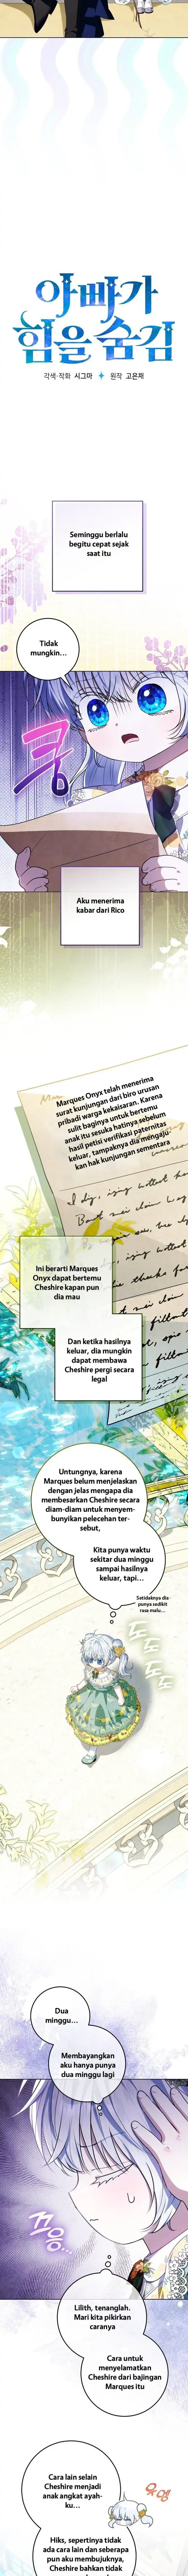 아빠가
힘을 숨김
각색·작화 시그마 ✦ 원작 고은채
Seminggu berlalu
begitu cepat sejak
saat itu
Tidak
mungkin...
쿵
Aku menerima
kabar dari Rico
Marques Onyx telah menerima
surat kunjungan dari biro urusan
pribadi warga kekaisaran. Karena
sulit baginya untuk bertemu
anak itu sesuka hatinya sebelum
hasil petisi verifikasi paternitas
keluar, tampaknya dis mengaju-
kan hak kunjungan sementara
Ini berarti Marques
Onyx dapat bertemu
Cheshire kapan pun
dia mau
Dan ketika hasilnya
keluar, dia mungkin
dapat membawa
Cheshire pergi secara
legal
Untungnya, karena
Marques belum menjelaskan
dengan jelas mengapa dia
membesarkan Cheshire secara
diam-diam untuk menyem-
bunyikan pelecehan ter-
sebut,
Kita punya waktu
sekitar dua minggu
sampai hasilnya
keluar, tapi...
Setidaknya dia
punya sedikit
rasa malu...
도도
도도
Dua
minggu...
Membayangkan
aku hanya punya
dua minggu lagi
끄응...
Lilith, tenanglah.
Mari kita pikirkan
caranya
Cara untuk
menyelamatkan
Cheshire dari bajingan
Marques itu
Cara lain selain
Cheshire menjadi
anak angkat ayah-
ku...
Hiks, sepertinya tidak
ada cara lain dan seberapa
pun aku membujuknya,
Cheshire bahkan tidak